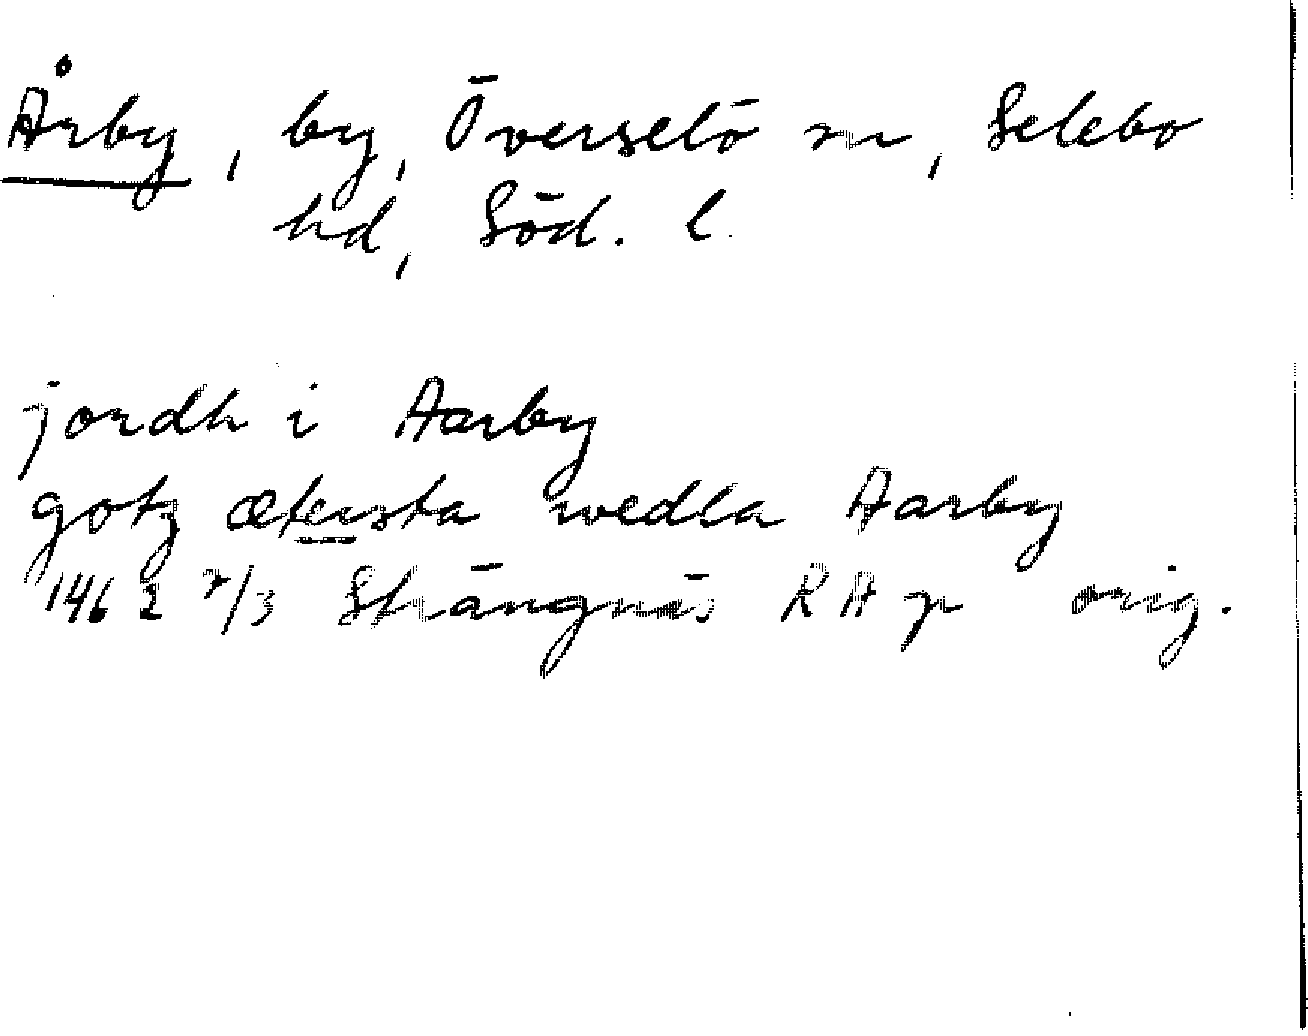 Årby, by, Överselö sn, Selebo
hd, Söd. l.
jordh i Aarby
gotz ætersta wedla Aarby
1462 7/3 Strängnäs RA p orig.